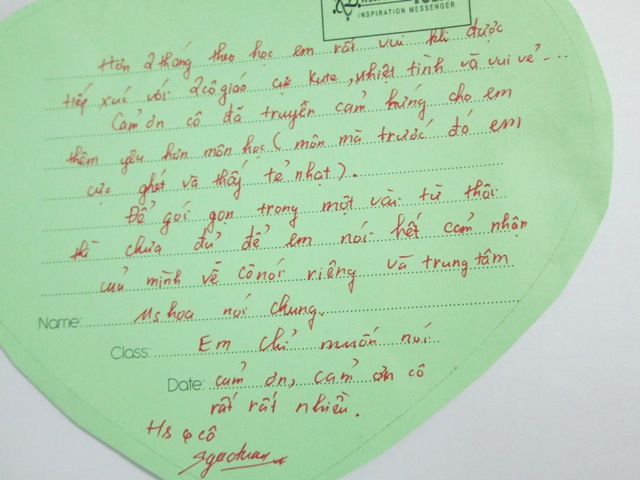 INSPIRATION MESSENGER
Hơn 2 tháng theo học em rất vui khi được
tiếp xúc với 2 cô giáo cực kute, nhiệt tình và vui vẻ...
Cảm ơn cô đã truyền cảm hứng cho em
thêm yêu hơn môn học (môn mà trước đó em
cực ghét và thấy tẻ nhạt).
Để gói gọn trong một vài từ thôi
thì chưa đủ để em nói hết cảm nhận
của mình về cô nói riêng và trung tâm
Name: Ms hoa nói chung.
Class: Em chỉ muốn nói
Date: cảm ơn, cảm ơn cô
rất rất nhiều.
Hs cô